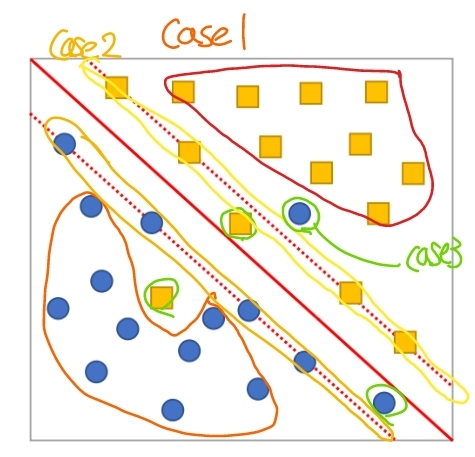 Case1
Case2
case3